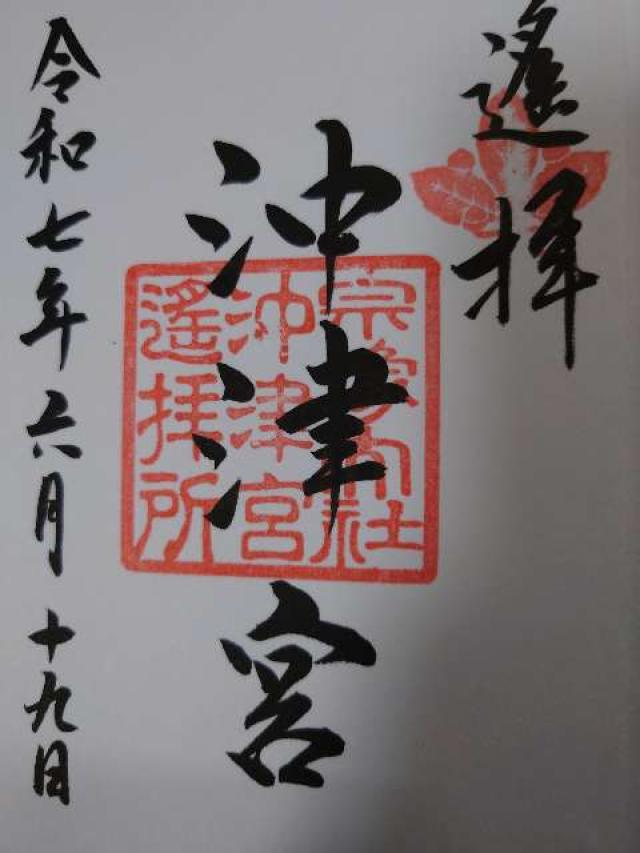 遙拝
沖津宮
宗像大社
沖津宮
遙拝所
令和七年六月十九日